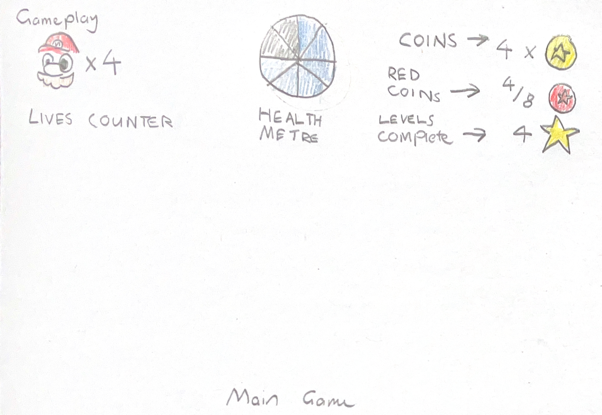 Gameplay
x 4
LIVES COUNTER
HEALTH
METRE
COINS → 4 x
RED
COINS → 4/8
LEVELS
COMPLETE → 4
Main Game